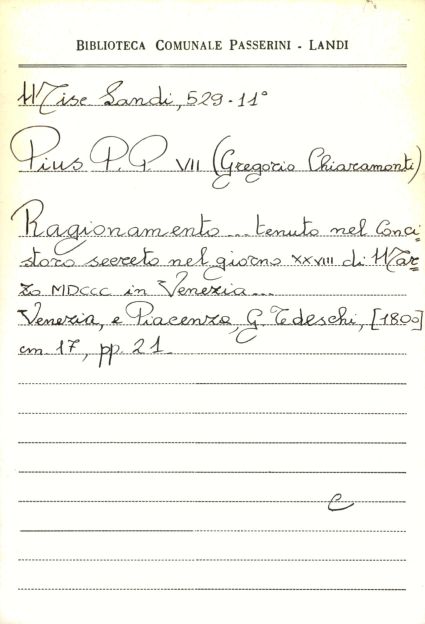 BIBLIOTECA COMUNALE PASSERINI - LANDI
Misc Landi, 529-11°
Pius P. P. VII (Gregorio Chiaramonti)
Ragionamento ... tenuto nel Conci=
storo secreto nel giorno XXVIII di Mar=
zo MDCCC in Venezia ...
Venezia, e Piacenza, G. Tedeschi, [1800]
cm. 17, pp. 21.
C